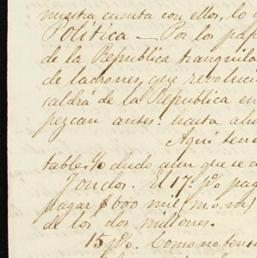 nuestra cuenta con ellos, lo q
Política — Por los pap
de la Republica tranquila
de ladrones, que revoluci
saldrá de la Republica en
pezcan antes: hasta aho
Aquí tene
table. Yo dudo aun que se a
Fondos. El 17. pº pag
pagar $ 000 mil
de los dos millones.
15 pº. Como no ten